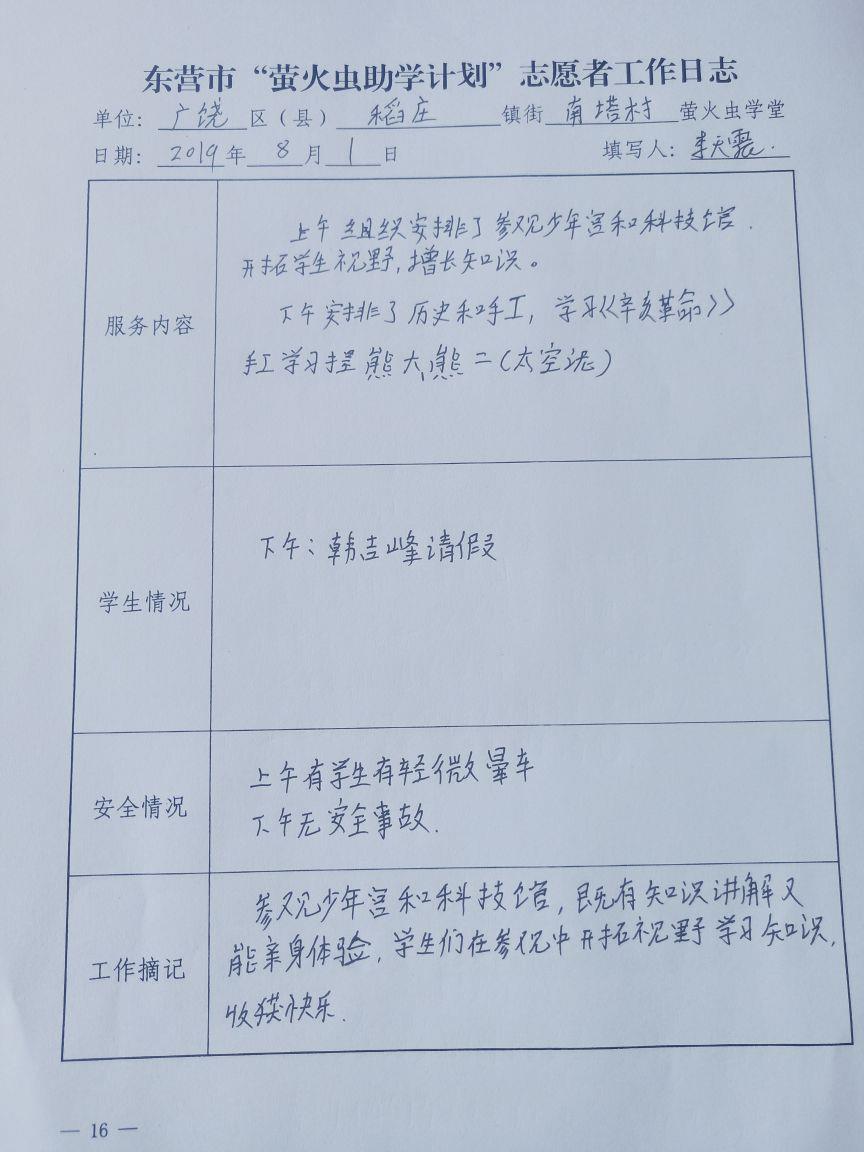 东营市“萤火虫助学计划”志愿者工作日志
单位：广饶区（县）稻庄镇街南塔村萤火虫学堂
日期：2019年8月1日 填写人：李天震.
服务内容
上午组织安排了参观少年宫和科技馆.
开拓学生视野,增长知识。
下午安排了历史和手工，学习《辛亥革命》
手工学习捏熊大、熊二(太空泥)
学生情况
下午：韩吉峰请假
安全情况
上午有学生有轻微晕车
下午无安全事故.
工作摘记
参观少年宫和科技馆,既有知识讲解又
能亲身体验,学生们在参观中开拓视野学习知识,
收获快乐.
— 16 —